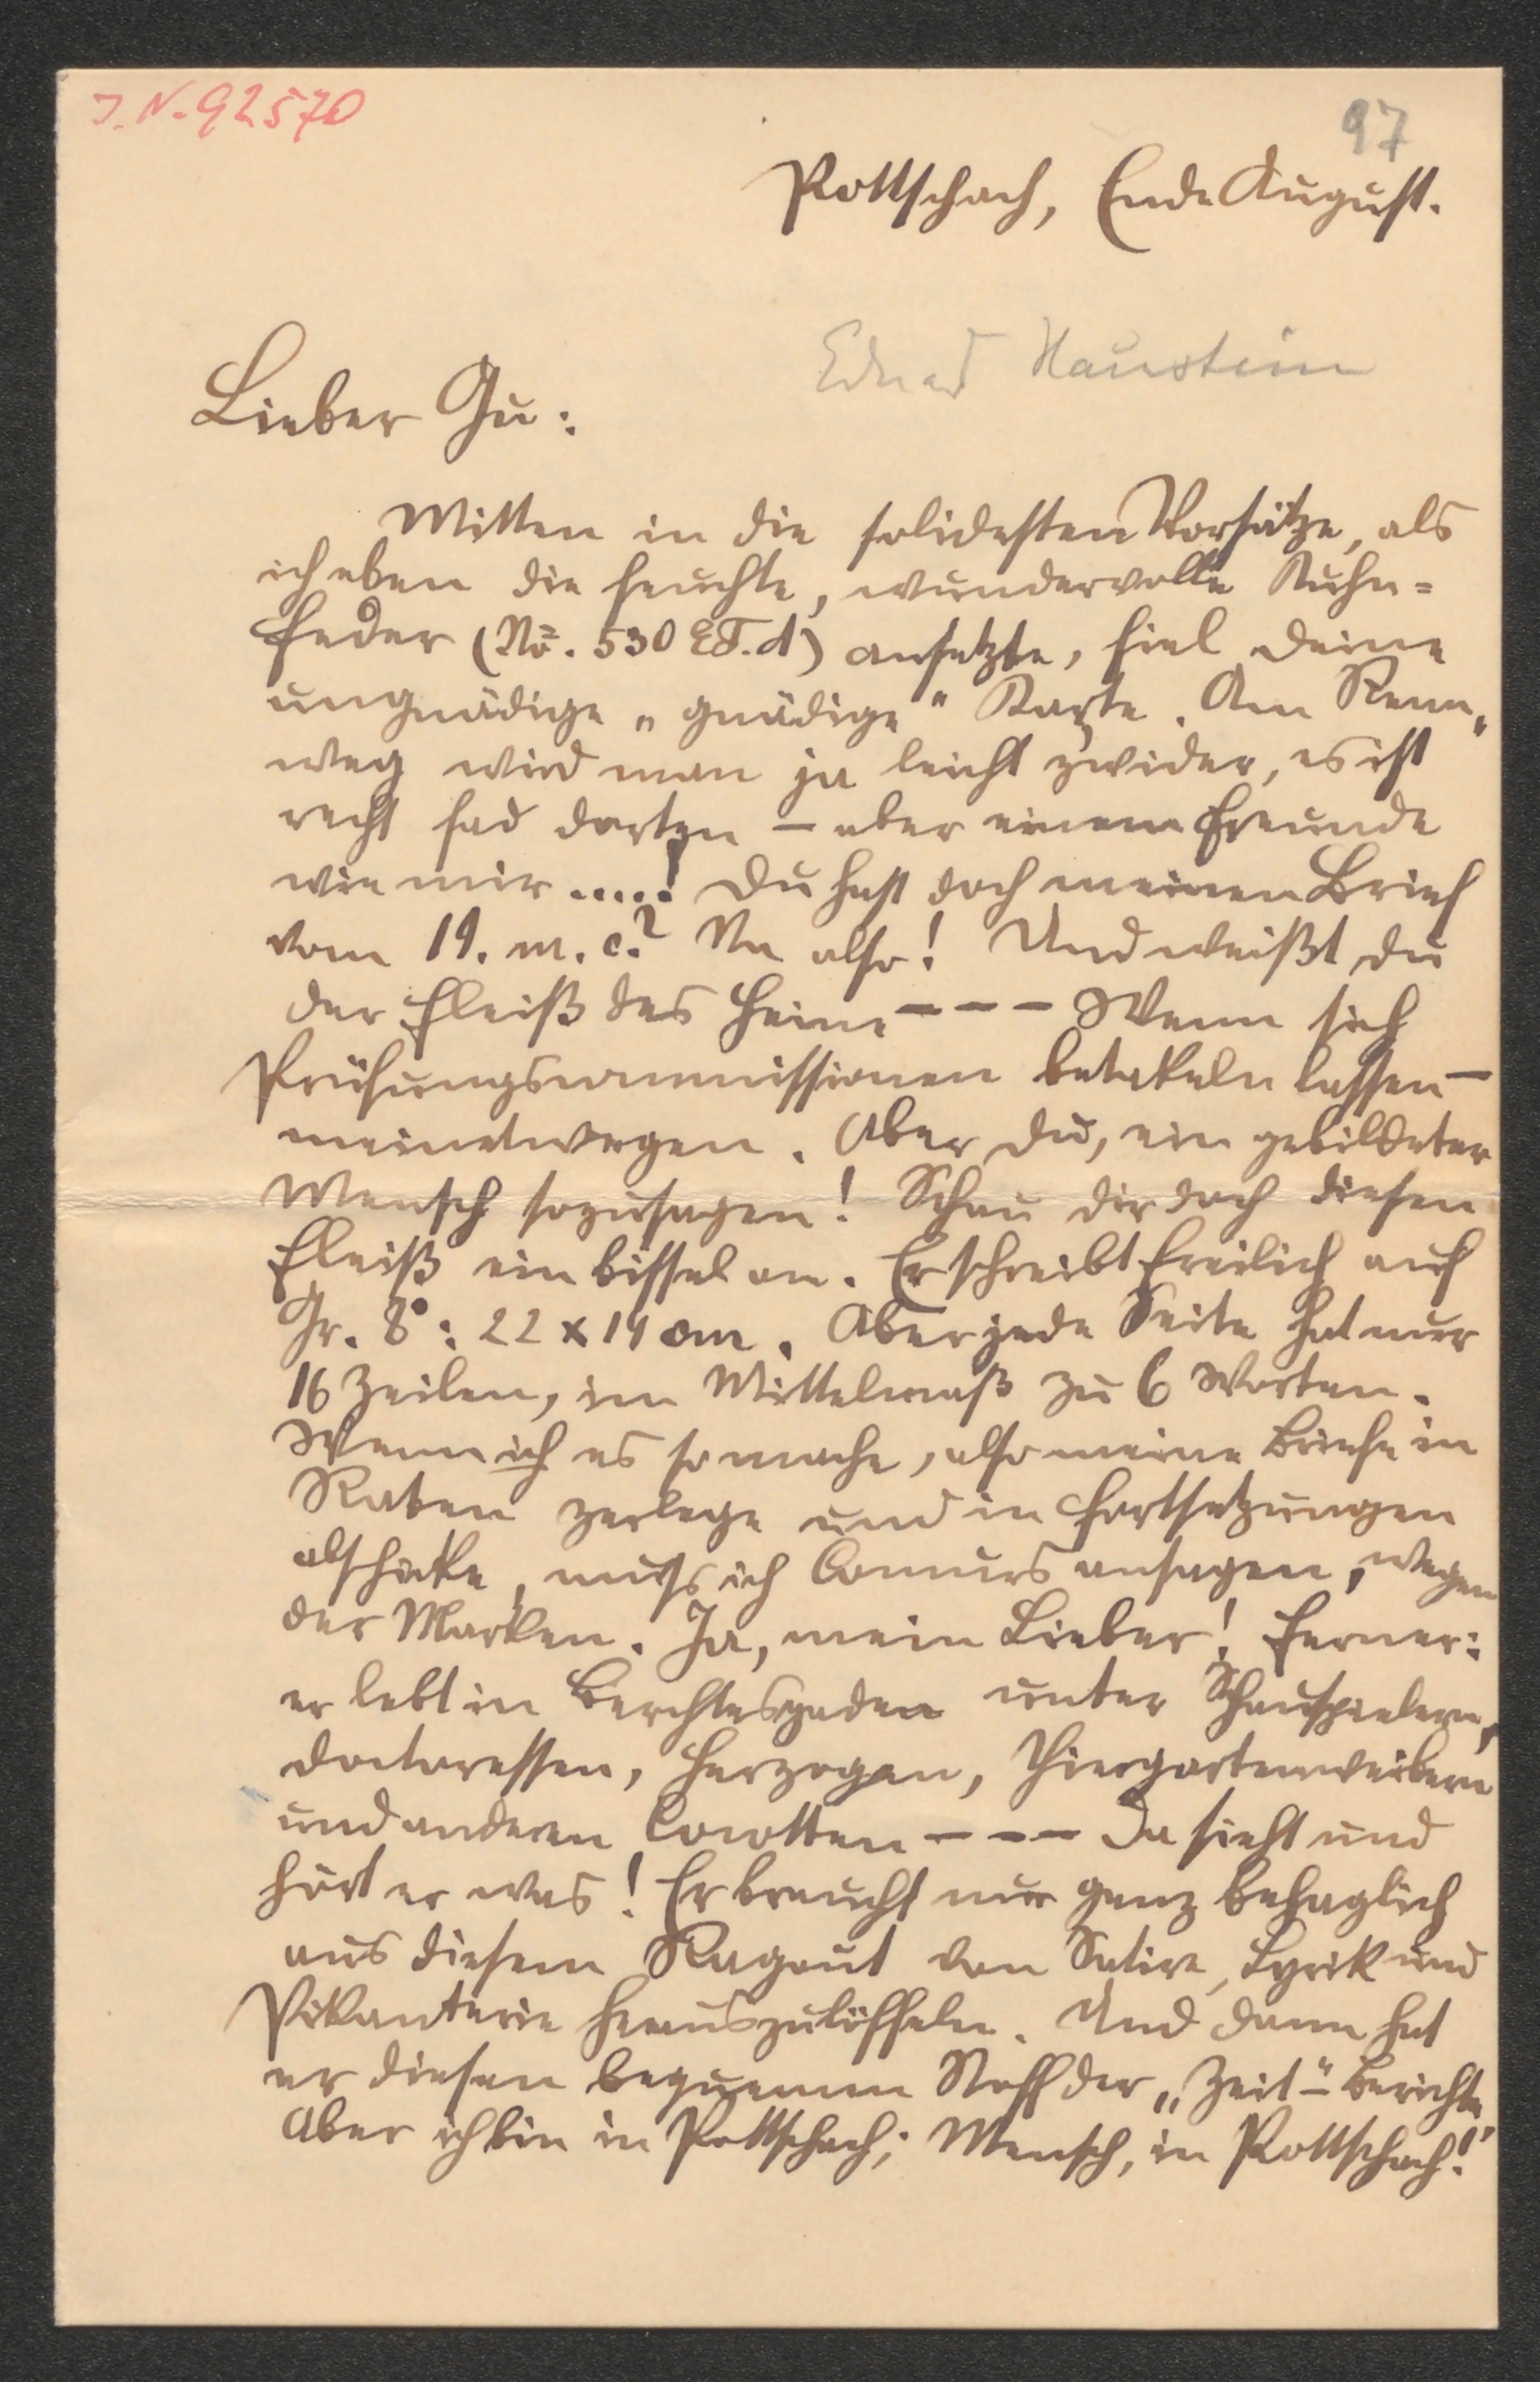 J. N. 92570
97
Pottschach, Ende August.
Eduard Haustein
Lieber Gu:
Mitten in die solidesten Vorsätze, als
ich eben die feuchte, wundervolle Kuhn=
feder (No. 530 EF. d) ansetzte, fiel deine
ungnädige „gnädige" Karte. Am Renn„
weg wird man ja leicht zwider, es ist
recht fad dorten – aber einem Freunde
wie mir .....! Du hast doch meinen Brief
vom 19. m. c.? Na also! Und weißt du
der Fleiß des Heine – – – Wenn sich
Prüfungscommissionen betakeln lassen –
meinetwegen. Aber du, ein gebildeter
Mensch sozusagen! Schau dir doch diesen
Fleiß ein bissel an. Er schreibt freilich auf
Gr. 8°: 22 x 14 cm. Aber jede Seite hat nur
16 Zeilen, im Mittelmaß zu 6 Worten.
Wenn ich es so mache, also meine Briefe in
Raten zerlege und in Fortsetzungen
abschicke, muss ich Concurs ansagen, wegen
der Marken. Ja, mein Lieber! Ferner:
er lebt in Berchtesgaden unter Schauspielern,
Doctoressen, Herzogen, Thiergartenweibern
und anderen Cocotten – – – Da sieht und
hört er was! Er braucht nur ganz behaglich
aus diesem Ragout von Satire, Lyrik und
Pikanterie herauszulöffeln. Und dann hat
er diesen bequemen Stoff der „Zeit"-Berichte
Aber ich bin in Pottschach; Mensch, in Pottschach!